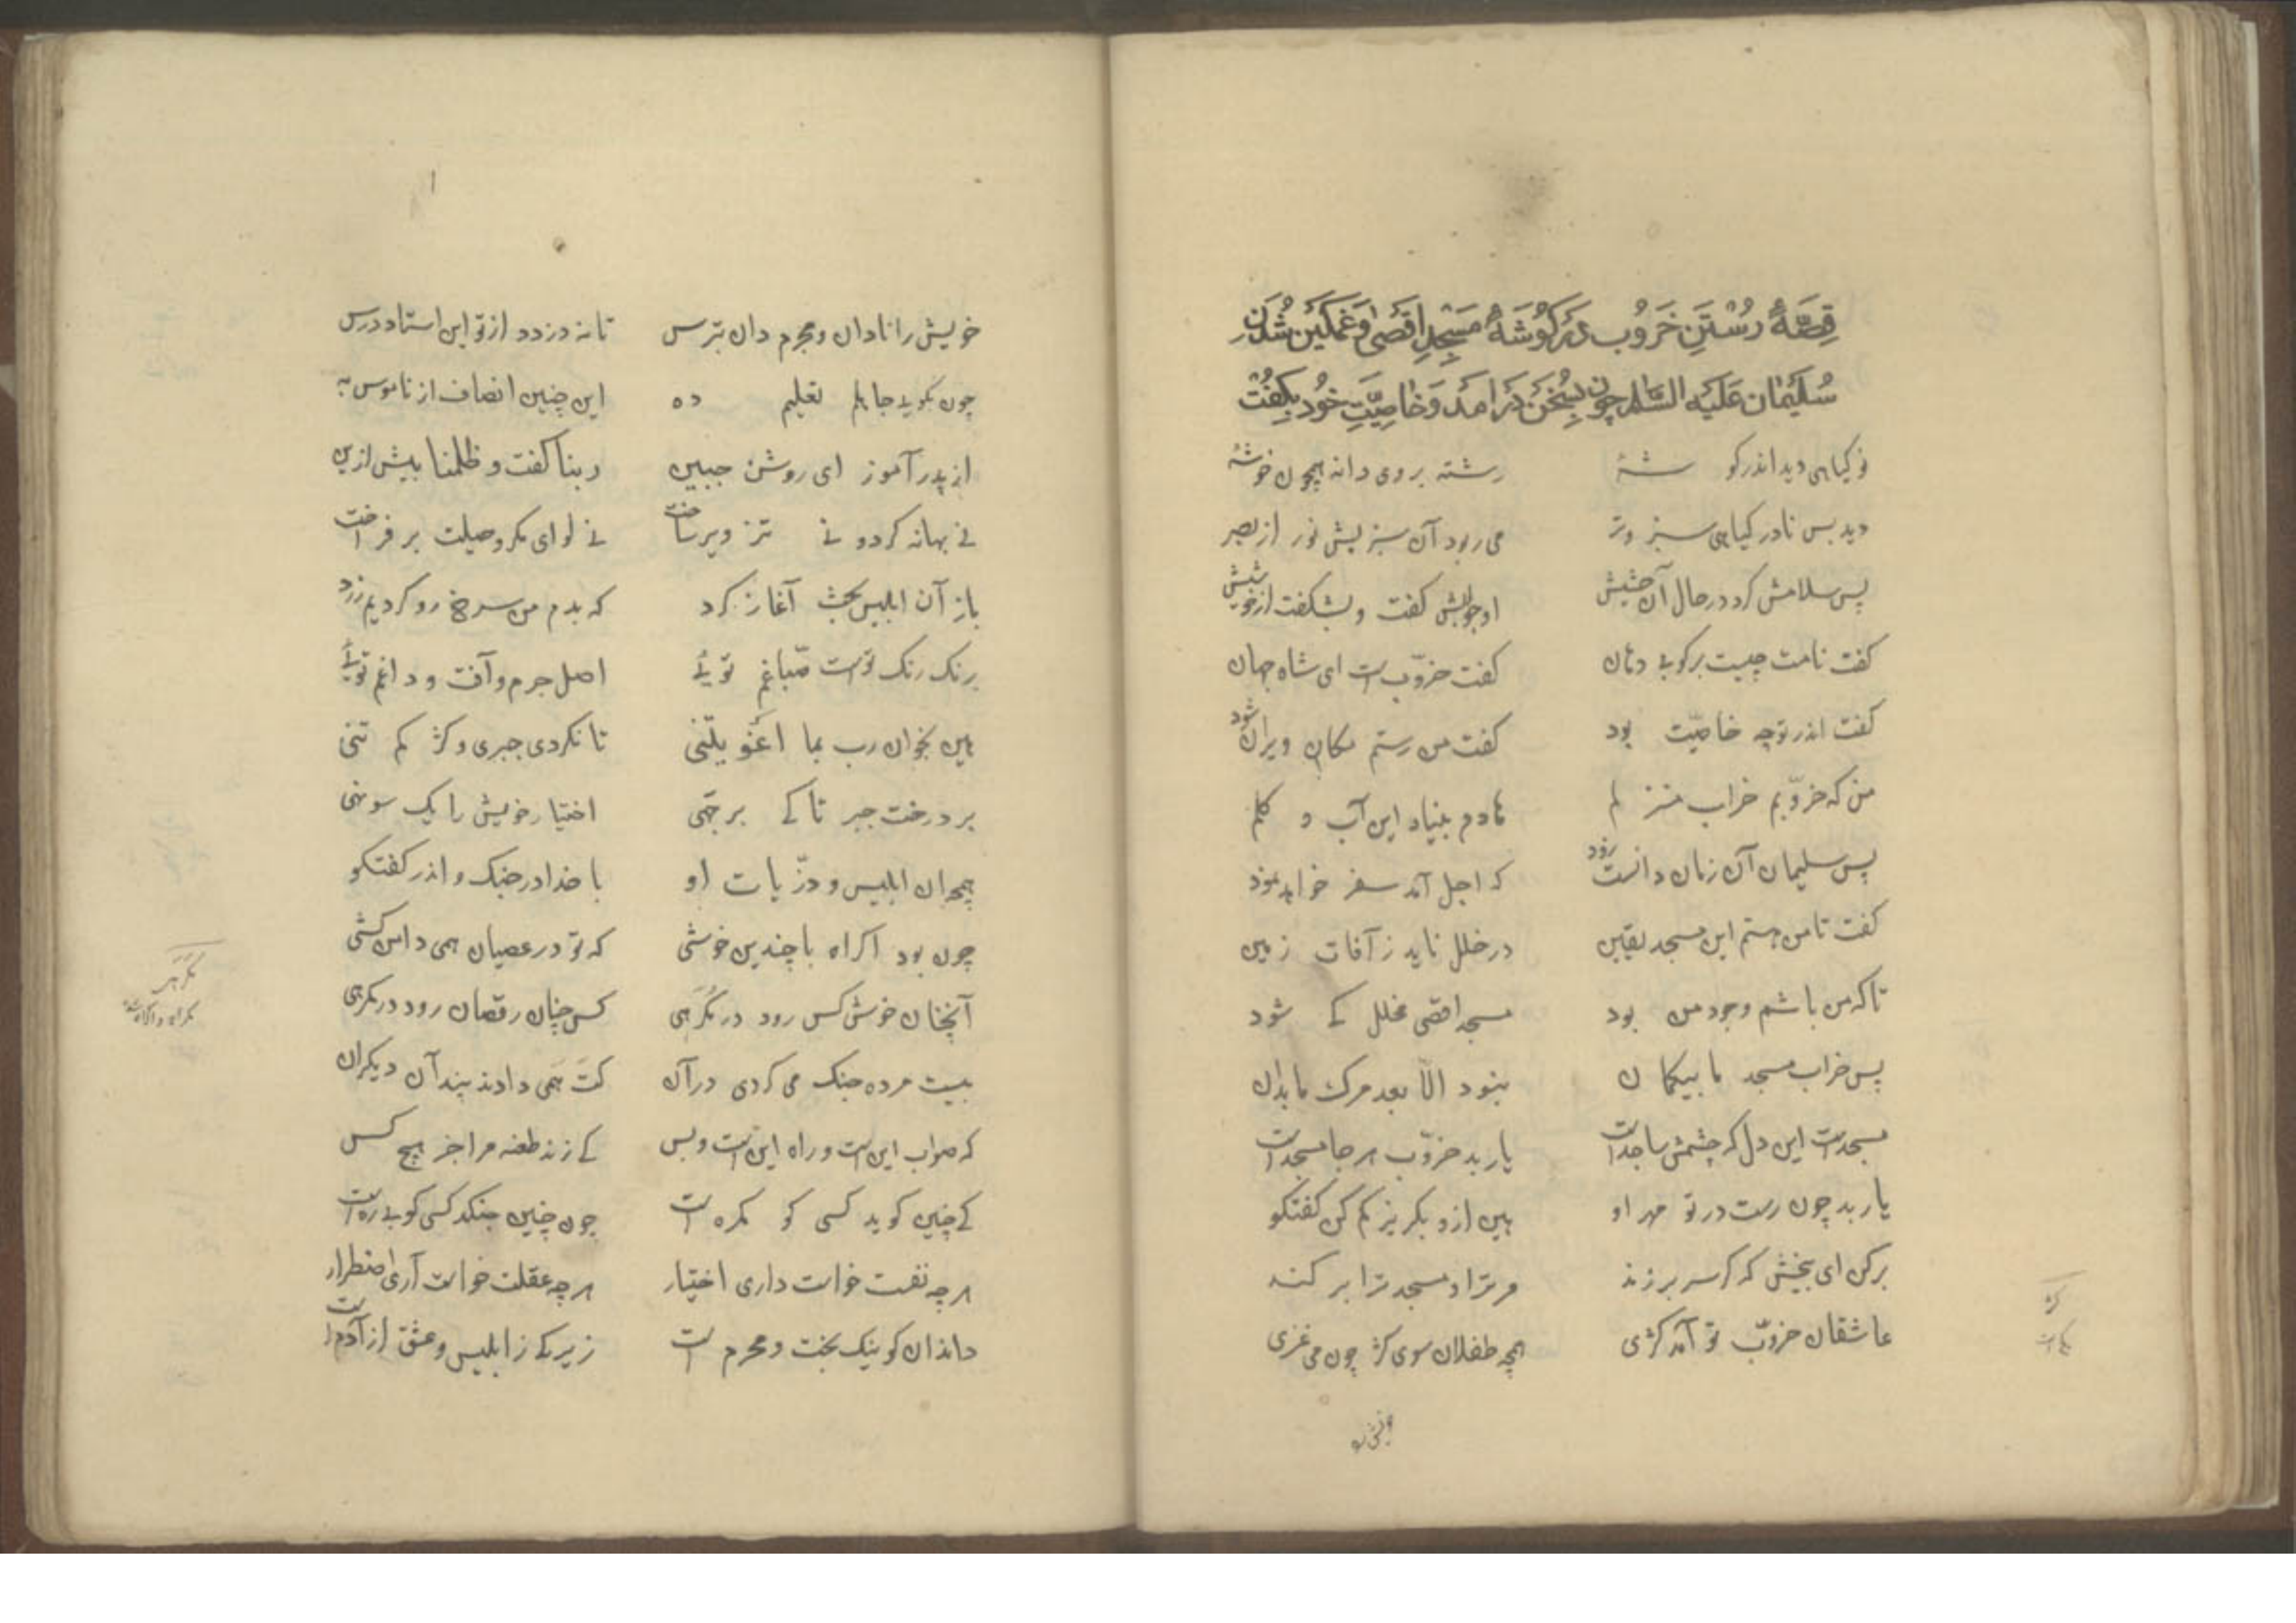 قِصَّهٔ رُسْتَنِ خَرُوب دَر کَوْشَهٔ مَسْجِدِ اَقْصٰی وَ غَمکین شُدَنِ
سُلَیْمٰان عَلَیْهِ السَّلٰم چون بِسُخَن دَرآمَد وَ خٰاصِیَّتِ خُود بِکُفْت
نو کیاهی دید اندر کوشهٔ رسته بر وی دانه همچون خوشهٔ
دید بس نادر کیاهی سبز و تر می ربود آن سبزیش نور از بصر
پس سلامش کرد در حال آن حشیش او جوابش کفت و بشکفت از خوشیش
کفت نامت چیست برکو بی دهان کفت خرّوبست ای شاه جهان
کفت اندر تو چه خاصیّت بود کفت من رستم مکان ویران شود
من که خرّوبم خراب منزلم هادم بنیاد این آب و کلم
پس سلیمان آن زمان دانست زود که اجل آمد سفر خواهد نمود
کفت تا من هستم این مسجد یقین در خلل ناید ز آفات زمین
تا که من باشم وجود من بود مسجد اقصی مخلل کی شود
پس خراب مسجد ما بیکمان نبود الّا بعد مرک ما بدان
مسجدست این دل که چشمش ساجدست یار بد خرّوب هر جا مسجدست
یار بد چون رست در تو مهر او هین ازو بکریز کم کن کفتکو
برکن ای بیخش که کر سر برزند مر ترا و مسجدت را برکند
عاشقان خرّوب تو آمد کژی همچو طفلان سوی کژ چون می غژی
خویش را
خویش را نادان و مجرم دان بترس تا نه دزدد از تو این استاد درس
چون بکویی جاهلم تعلیم ده این چنین انصاف از ناموس به
از پدر آموز ای روشن جبین ربنا کفت و ظلمنا پیش ازین
نی بهانه کرد و نی تزویر ساخت نی لوای مکر و حیلت بر فراخت
باز آن ابلیس بحث آغاز کرد که بدم من سرخ رو کردیم زرد
رنک رنک توست صبّاغم تویی اصل جرم و آفت و داغم تویی
هین بخوان رب بما اغویتنی تا نکردی جبری و کژ کم تنی
بر درخت جبر تا کی بر جهی اختیار خویش را یک سو نهی
همچو آن ابلیس و ذرّیات او با خدا در جنک و اندر کفتکو
چون بود اکراه با چندین خوشی که تو در عصیان همی دامن کشی
آنچنان خوش کس رود در مُکرَهی کس چنان رقصان رود در کمرهی
بیست مرده جنک می کردی در آن کت همی دادند پند آن دیکران
که صواب این است و راه این است و بس کی زند طعنه مرا جز هیچ کس
کی چنین کوید کسی کو مکره است چون چنین جنکد کسی کو بی ره است
هر چه نفست خواست داری اختیار هر چه عقلت خواست آری اضطرار
داند آن کو نیک بخت و محرم است زیرکی ز ابلیس و عشق از آدم است